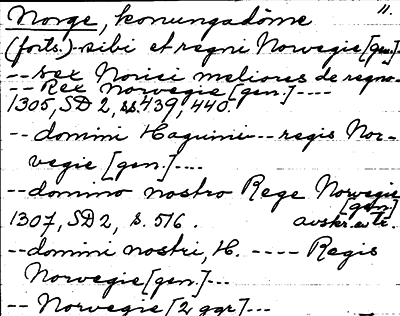 Norge, konungadöme 11.
(forts.) - sibi et regni Norwegie [gen.] -
-- sex Norici meliores de regno -
-- Rex Norwegie [gen.] ----
1305, SD 2, ss. 439, 440.
-- domini Haquini -- regis Nor-
vegie [gen.] ---
-- domino nostro Rege Norwegie
[gen.]
1307, SD 2, s. 516. avskr. ev. tr.
-- domini nostri, H. ---- Regis
Norwegie [gen.] ---
-- Norwegie [2 ggr] ---